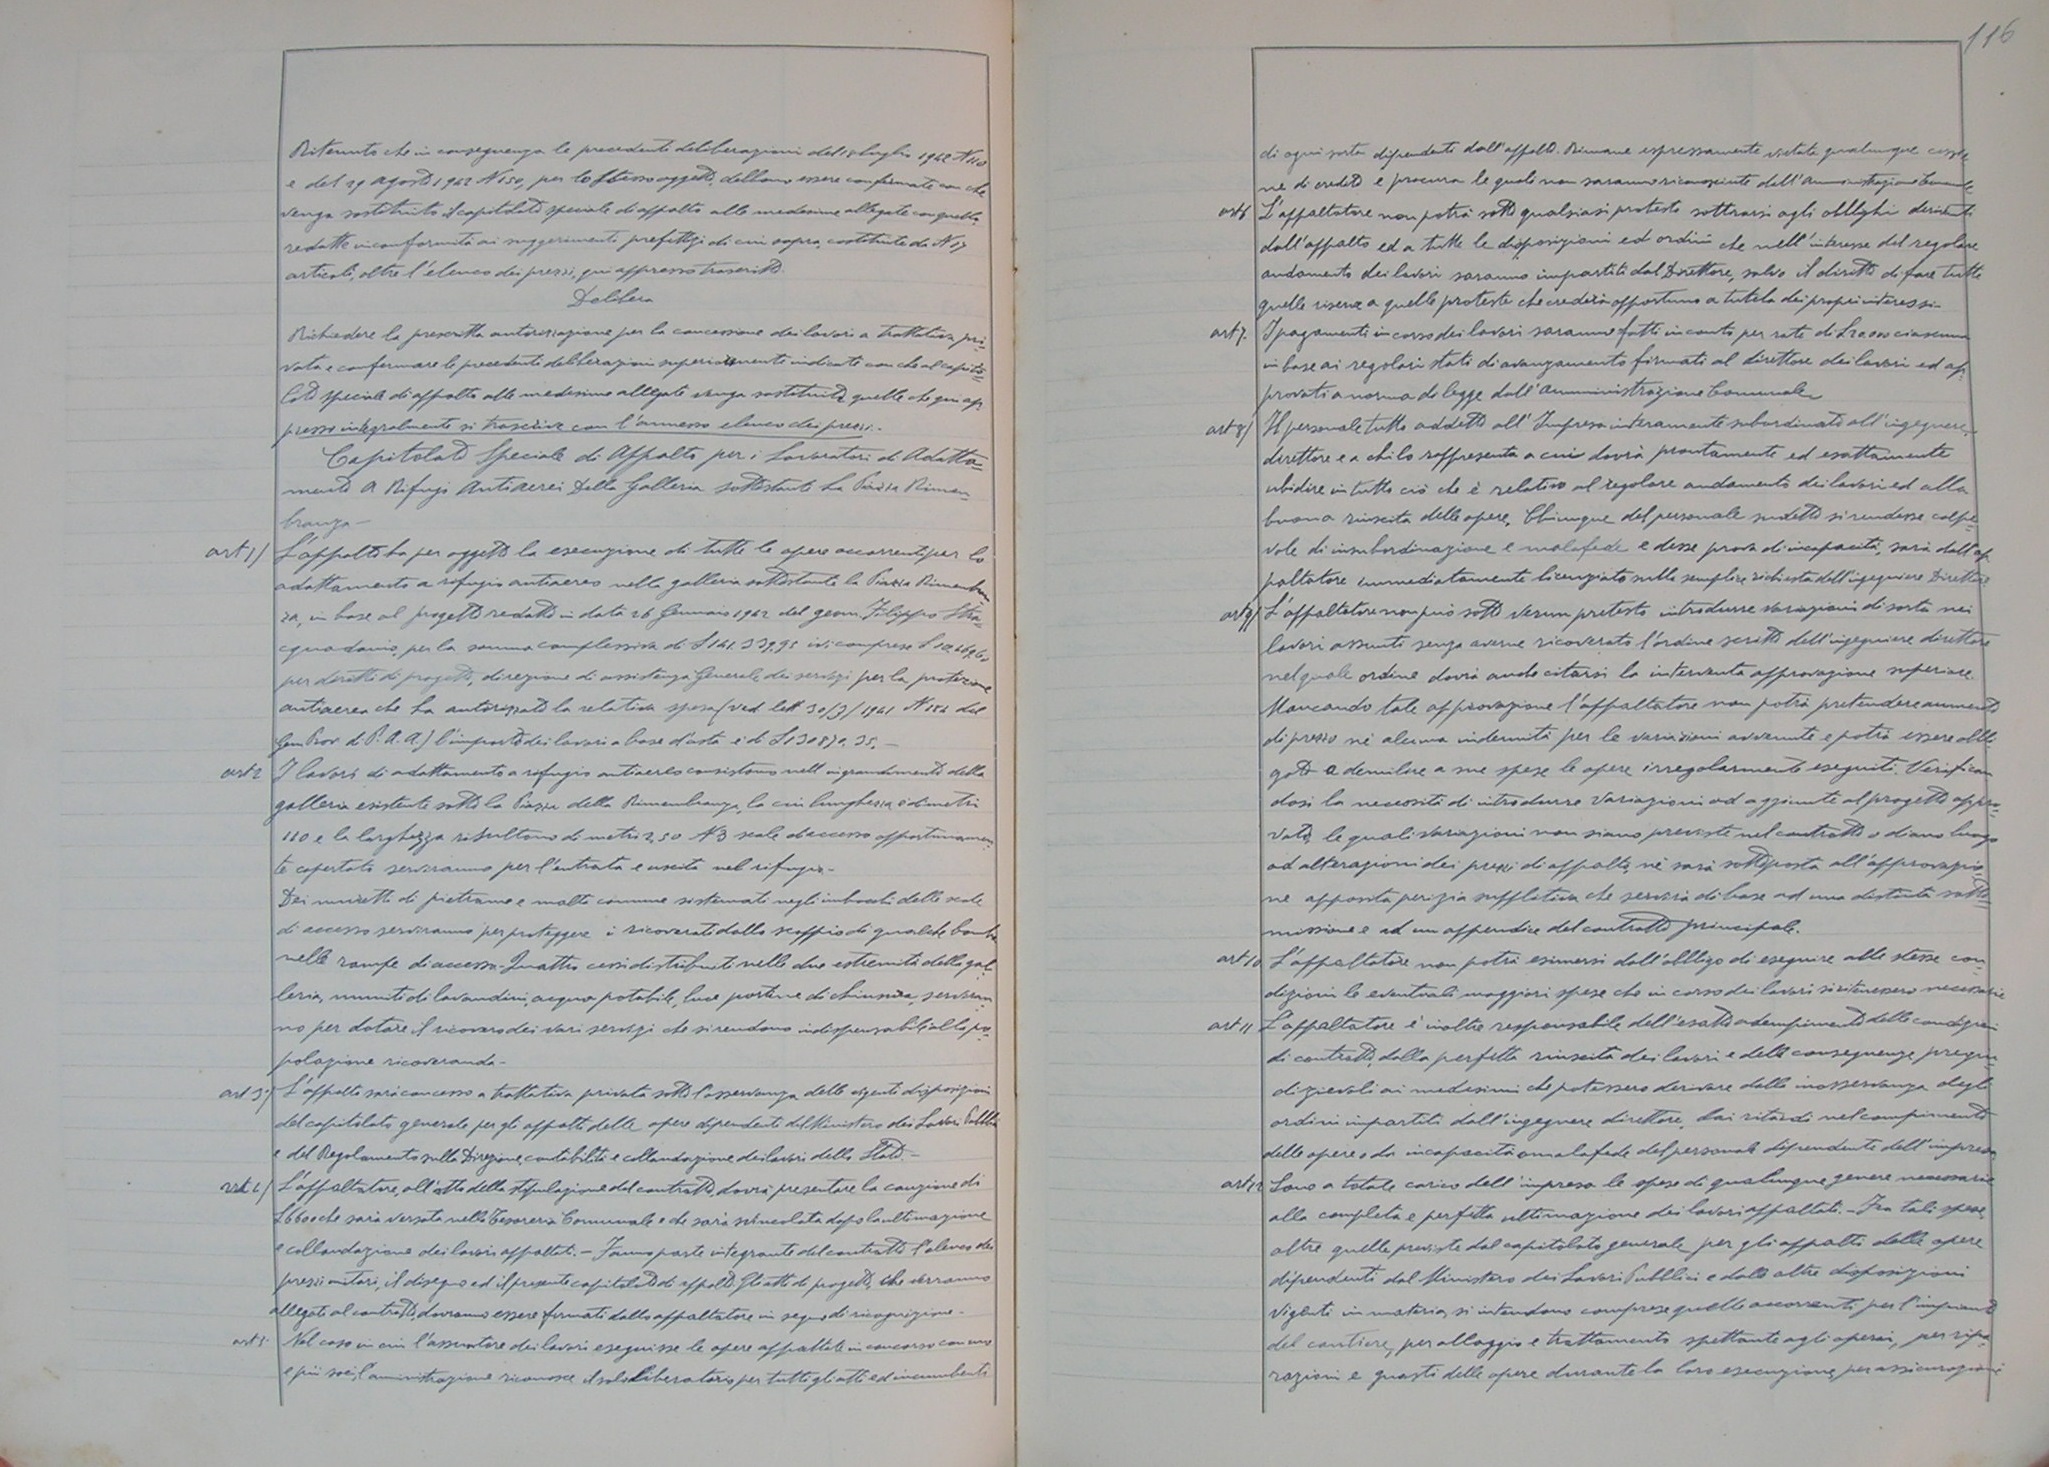 Ritenuto che in conseguenza le precedenti deliberazioni del 15 luglio 1942 N 110
e del 29 agosto 1942 N 150, per lo stesso oggetto, debbono essere confermate con che
venga sostituito il capitolato speciale di appalto alle medesime allegate con quello
redatto in conformità ai suggerimenti prefettizi di cui sopra, costituito da N 17
articoli, oltre l'elenco dei prezzi, qui appresso trascritto.
Delibera
Richiedere la prescritta autorizzazione per la concessione dei lavori a trattativa pri-
vata e confermare le precedenti deliberazioni superiormente indicate con che al capito-
lato speciale di appalto alle medesime allegato venga sostituito quello che qui ap-
presso integralmente si trascrive con l'annesso elenco dei prezzi.
Capitolato Speciale di Appalto per i Lavoratori di Adatta-
mento a Rifugi Antiaerei Della Galleria sottostante la Piazza Rimem-
branza -
art 1) L'appalto ha per oggetto la esecuzione di tutte le opere occorrenti per lo
adattamento a rifugio antiaereo nella galleria sottostante la Piazza Rimembran
za, in base al progetto redatto in data 26 Gennaio 1942 del geom. Filippo Stra-
quadanio, per la somma complessiva di L 141.339,95 ivi comprese L
per diretti di progetto, direzione di assistenza Generale dei servizi per la protezione
antiaerea che ha autorizzato la relativa spesa (ved lett 30/7/1941 N 184 del
Com Prov. di P. A. A.) l'importo dei lavori a base d'asta è di L 130870.35. -
art 2 I lavori di adattamento a rifugio antiaereo consistono nell'ingrandimento della
galleria esistente sotto la Piazza della Rimembranza, la cui lunghezza è di metri
110 e la larghezza risultano di metri 2,50 N 3 scale d'accesso opportunamen-
te copertate serviranno per l'entrata e uscita nel rifugio -
Dei muretti di pietrame e malta comune sistemati negli imbocchi delle scale
di accesso serviranno per proteggere i ricoverati dallo scoppio di qualche bomba
nelle rampe di accesso. Quattro cessi distribuiti nelle due estremità della gal-
leria, muniti di lavandini, acqua potabile, luce portine di chiusura, serviran-
no per dotare il ricovero dei vari servizi che si rendono indispensabili alla po-
polazione ricoveranda -
art 3°) L'appalto sarà concesso a trattativa privata sotto l'osservanza delle vigenti disposizioni
del capitolato generale per gli appalti delle opere dipendenti dal Ministero dei Lavori Pubblici
e del Regolamento sulla Direzione, contabilità e collaudazione dei lavori dello Stato. -
art 4) L'appaltatore, all'atto della stipulazione del contratto, dovrà presentare la cauzione di
L 6600 che sarà versata nella Tesoreria Comunale e che sarà svincolata dopo la ultimazione
e collaudazione dei lavori appaltati. - Fanno parte integrante del contratto l'elenco dei
prezzi unitari, il disegno ed il presente capitolato di appalto. Gli atti di progetto, che verranno
allegati al contratto, dovranno essere firmati dallo appaltatore in segno di ricognizione -
art 5 Nel caso in cui l'assuntore dei lavori eseguisse le opere appaltate in concorso con uno
e più soci, l'aministrazione riconosce il solo Liberatario per tutti gli atti ed incumbenti
116
di ogni sorta dipendenti dall'appalto. Rimane espressamente vietata qualunque cessio
ne di credito e procura le quali non saranno riconosciute dall'Amministrazione Comunale
art 6 L'appaltatore non potrà sotto qualsiasi protesto sottrarsi agli obblighi derivanti
dall'appalto ed a tutte le disposizioni ed ordini che nell'interesse del regolare
andamento dei lavori saranno impartiti dal Direttore, salvo il diritto di fare tutte
quelle riserve a quelle proteste che crederà opportuno a tutela dei propri interessi -
art 7. I pagamenti in corso dei lavori saranno fatti in conto per rate di L 20.000 ciascuna
in base ai regolari stati di avanzamento firmati al direttore dei lavori ed ap-
provati a norma di legge dall'Amministrazione Comunale
art 8) Il personale tutto addetto all'Impresa interamente subordinato all'ingegnere
direttore e a chi lo rappresenta a cui dovrà prontamente ed esattamente
ubidire in tutto ciò che è relativo al regolare andamento dei lavori ed alla
buona riuscita delle opere. Chiunque del personale sudetto si rendesse colpe-
vole di insubordinazione e malafede e desse prova di incapacità, sarà dall'ap-
paltatore immediatamente licenziato sulla semplice richiesta dell'ingegniere Direttore
art 9) L'appaltatore non può sotto verun pretesto introdurre variazioni di sorta nei
lavori assunti senza averne ricoverato l'ordine scritto dell'ingegniere direttore
nel quale ordine dovrà anche citarsi la intervenuta approvazione superiore.
Mancando tale approvazione l'appaltatore non potrà pretendere aumento
di prezzo nè alcuna indennità per le variazioni avvenute e potrà essere obbli
gato a demolire a sue spese le opere irregolarmente eseguiti. Verifican
dosi la necessità di introdurre Variazioni od aggiunte al progetto appro-
vato, le quali variazioni non siano previste nel contratto o diano luogo
ad alterazioni dei prezzi di appalto, nè sarà sottoposta all'approvazio-
ne apposita perizia supplettiva che servirà di base ad una distinta sotto-
missione e ad un appendice del contratto principale.
art 10 L'appaltatore non potrà esimersi dall'obbligo di eseguire alle stesse con-
dizioni le eventuali maggiori spese che in corso dei lavori si ritenessero necessarie
art 11 L'appaltatore è inoltre responsabile dell'esatto adempimento delle condizioni
di contratto, dalla perfetta riuscita dei lavori e delle conseguenze pregiu-
dizievoli ai medesimi che potessero derivare dalla inosservanza degli
ordini impartiti dall'ingegnere direttore, dai ritardi nel compimento
delle opere o da incapacità o malafede del personale dipendente dell'impresa
art 12 Sono a totale carico dell'impresa le spese di qualunque genere necessarie
alla completa e perfetta ultimazione dei lavori appaltati. - Fra tali spese,
oltre quelle previste dal capitolato generale per gli appalti delle opere
dipendenti dal Ministero dei Lavori Pubblici e dalle altre disposizioni
vigenti in materia, si intendono comprese quelle occorrenti per l'impianto
del cantiere, per alloggio e trattamento spettante agli operai, per ripa-
razioni e guasti delle opere durante la loro esecuzione, per assicurazioni